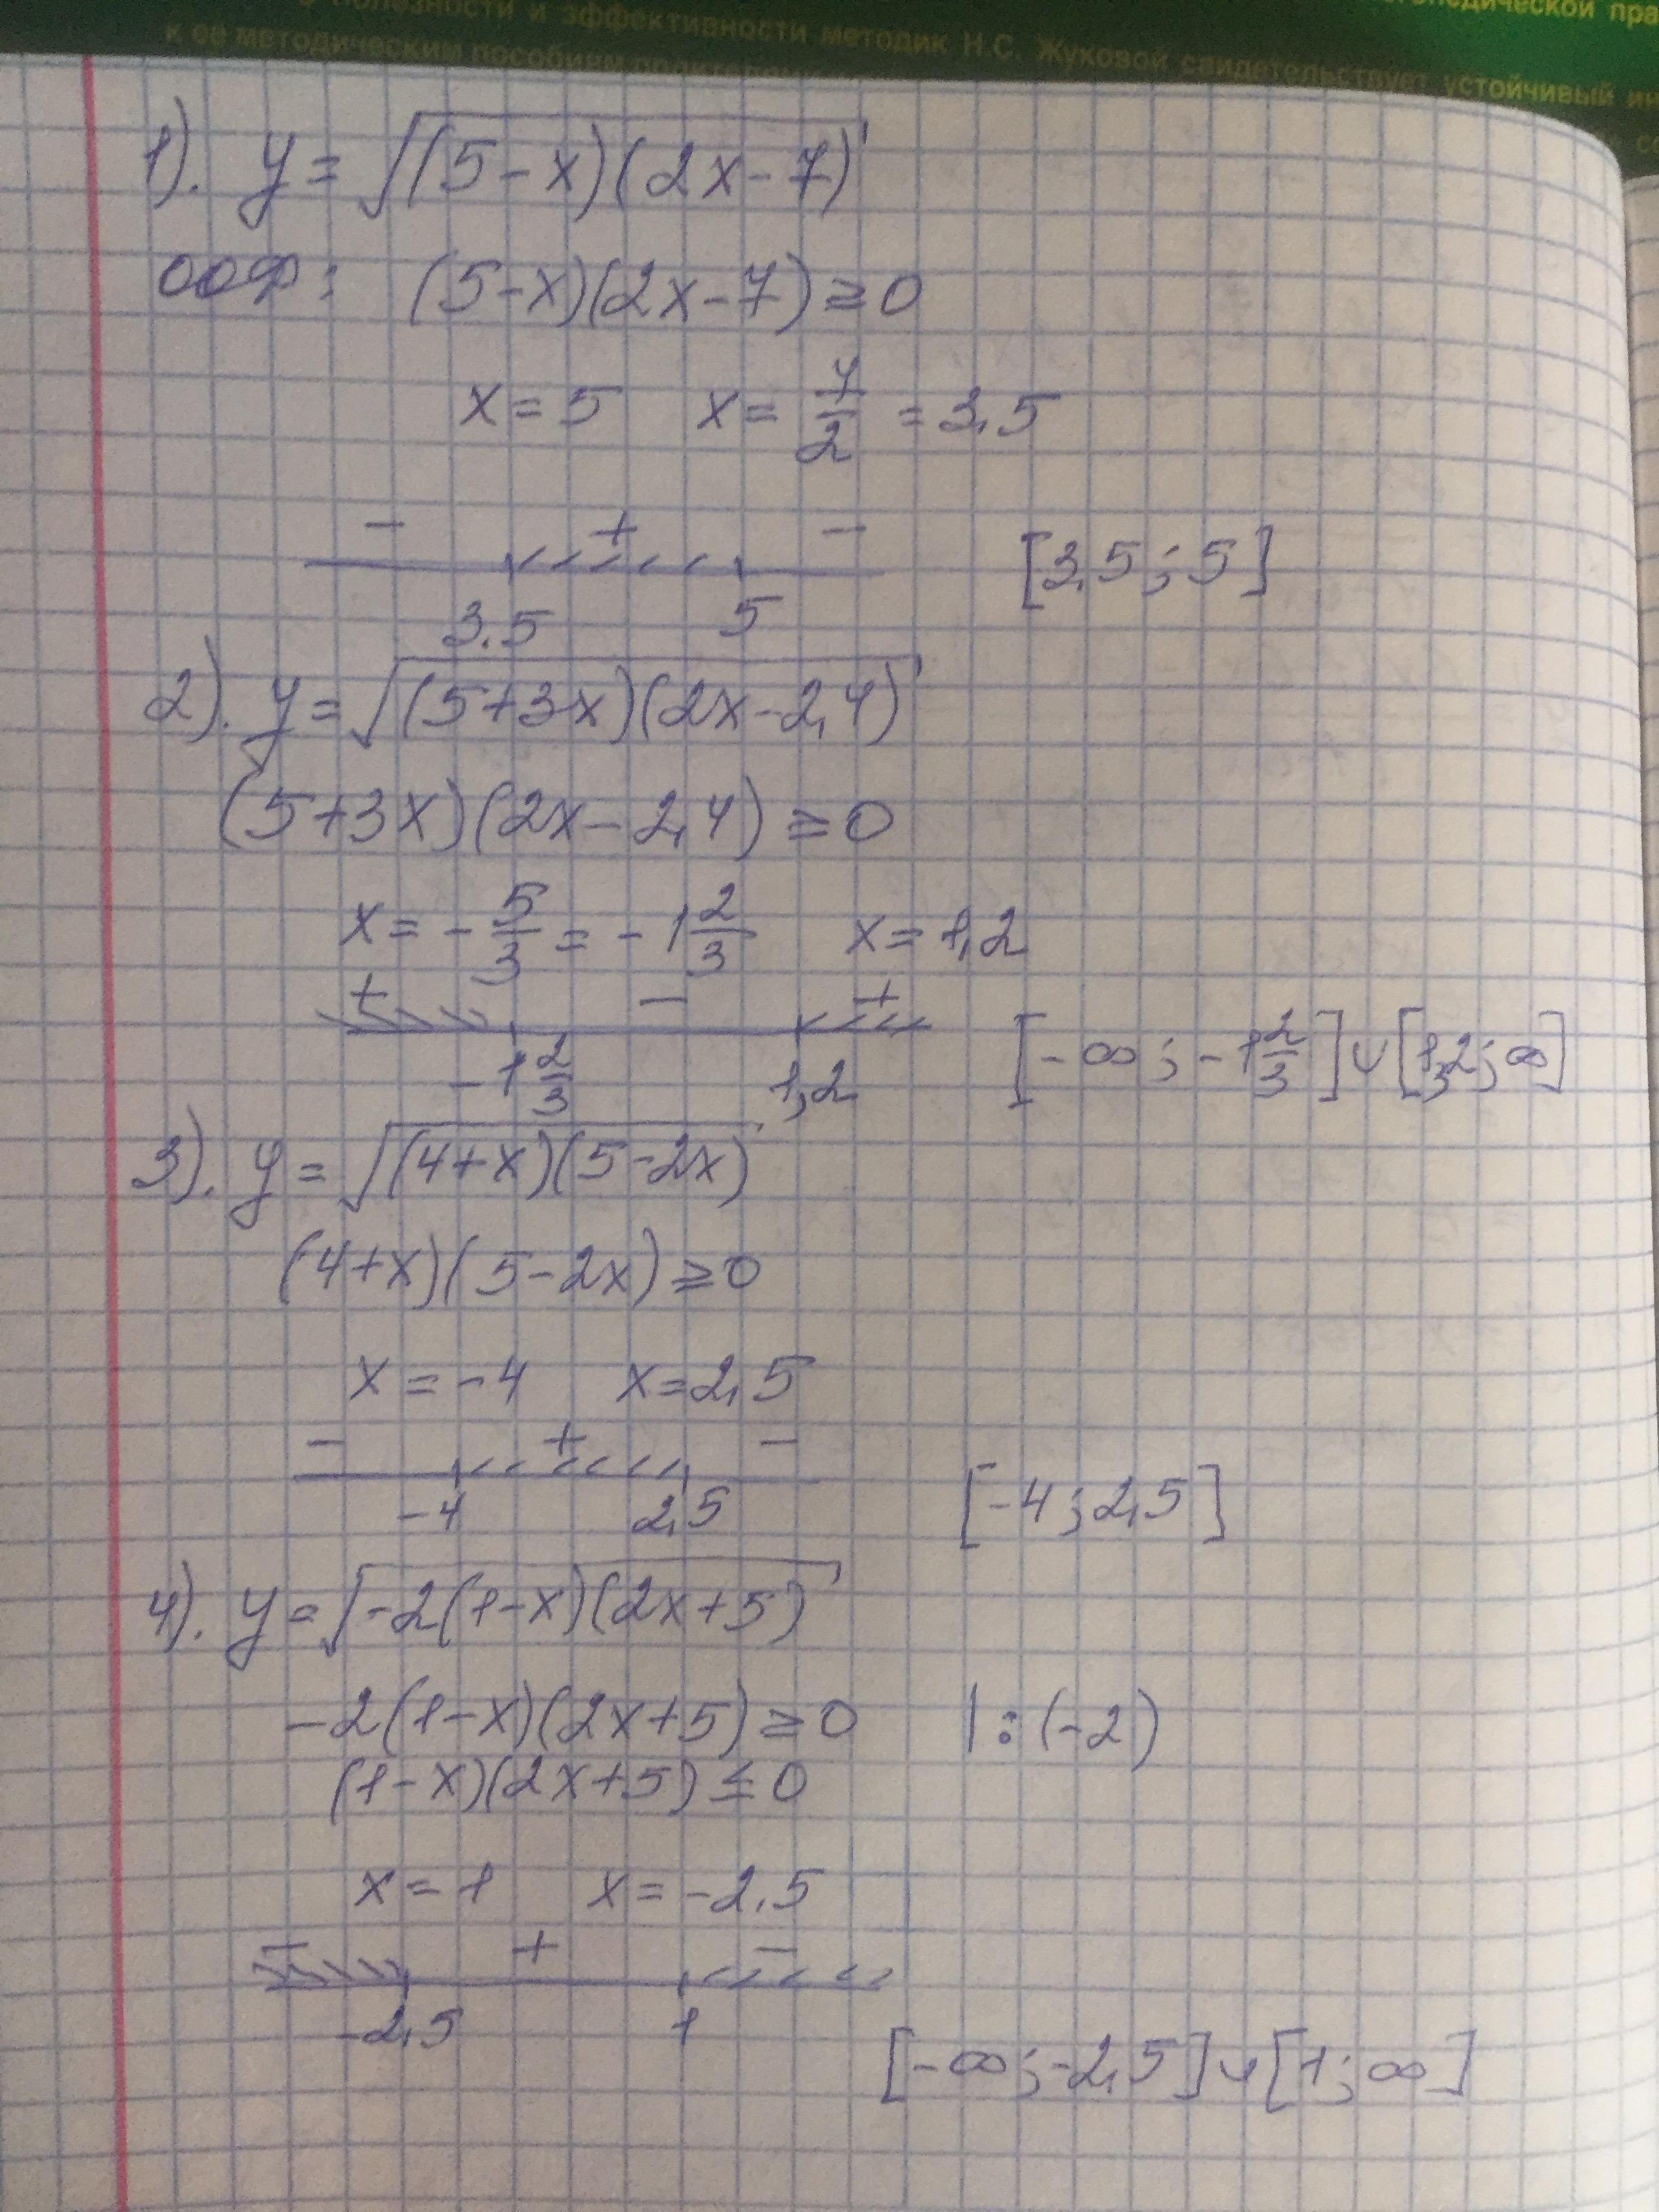 огопедической пра
о полезности и эффективности методик Н.С. Жуковой свидетельствует устойчивый ин
к её методическим пособиям
1). y = √(5-x)(2x-7)
ООФ: (5-x)(2x-7) ≥ 0
x = 5 x = 7/2 = 3,5
- + -
3.5 5 [3,5 ; 5]
2). y = √(5+3x)(2x-2,4)
(5+3x)(2x-2,4) ≥ 0
x = -5/3 = -1 2/3 x = 1,2
+ - +
-1 2/3 1,2 [-∞ ; -1 2/3] ∪ [1,2 ; ∞]
3). y = √(4+x)(5-2x)
(4+x)(5-2x) ≥ 0
x = -4 x = 2,5
- + -
-4 2,5 [-4 ; 2,5]
4). y = √-2(1-x)(2x+5)
-2(1-x)(2x+5) ≥ 0 | : (-2)
(1-x)(2x+5) ≤ 0
x = 1 x = -2.5
- + -
-2,5 1
[-∞ ; -2,5] ∪ [1 ; ∞]